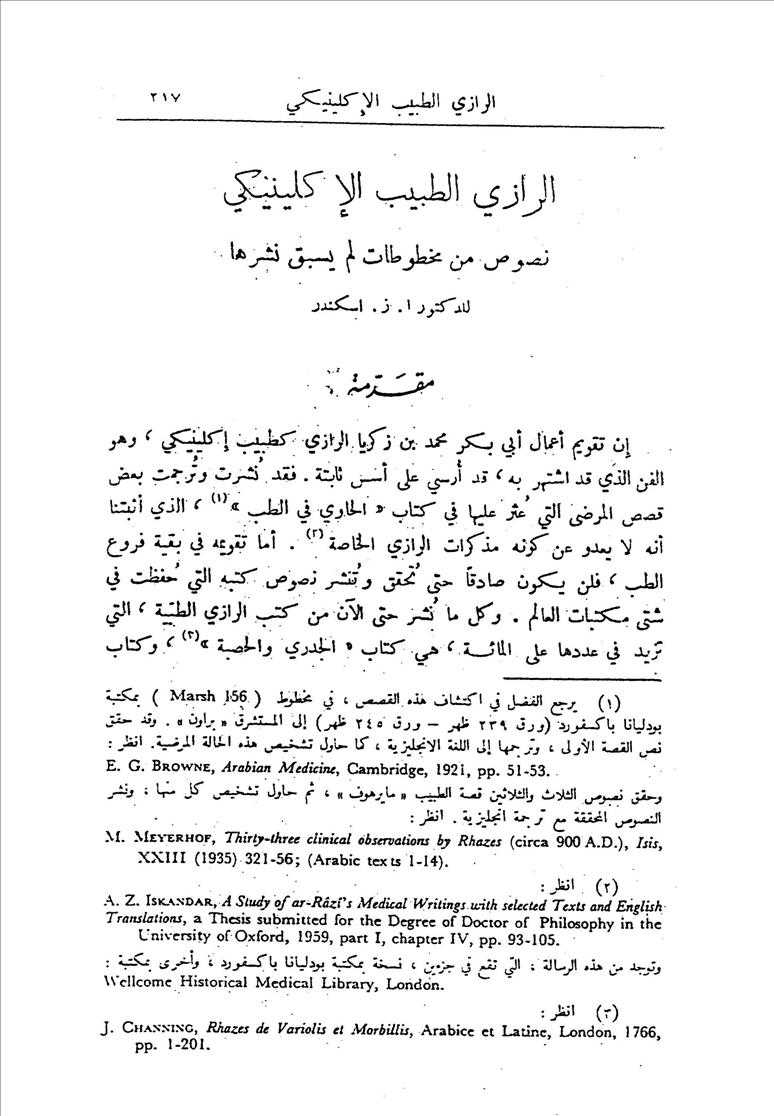 الرازي الطبيب الإكلينيكي ٢١٧
الرازي الطبيب الإكلينيكي
نصوص من مخطوطات لم يسبق نشرها
للدكتور ا. ز. اسكندر
مقدّمة
إن تقويم أعمال أبي بكر محمد بن زكريا الرازي كطبيب إكلينيكي ، وهو
الفن الذي قد اشتهر به ، قد أُرسي على أسس ثابتة . فقد نُشرت وتُرجمت بعض
قصص المرضى التي عُثر عليها في كتاب « الحاوي في الطب » (١) ، الذي أثبتنا
أنه لا يعدو عن كونه مذكرات الرازي الخاصة (٢) . أما تقويمه في بقية فروع
الطب ، فلن يكون صادقاً حتى تُحقق وتُنشر نصوص كتبه التي حُفظت في
شتى مكتبات العالم . وكل ما نُشر حتى الآن من كتب الرازي الطبّية ، التي
تزيد في عددها على المائة ، هي كتاب « الجدري والحصبة » (٣) ، وكتاب
(١) يرجع الفضل في اكتشاف هذه القصص ، في مخطوط ( Marsh 156 ) بمكتبة
بودليانا باكسفورد (ورق ٢٣٩ ظهر – ورق ٢٤٥ ظهر) إلى المستشرق « براون » . وقد حقق
نص القصة الأولى ، وترجمها إلى اللغة الانجليزية ، كما حاول تشخيص هذه الحالة المرضية. انظر :
E. G. BROWNE, Arabian Medicine, Cambridge, 1921, pp. 51-53.
وحقق نصوص الثلاث والثلاثين قصة الطبيب « مايرهوف » ، ثم حاول تشخيص كل منها ، ونشر
النصوص المحققة مع ترجمة انجليزية . انظر :
M. MEYERHOF, Thirty-three clinical observations by Rhazes (circa 900 A.D.), Isis,
XXIII (1935) 321-56; (Arabic texts 1-14).
(٢) انظر :
A. Z. ISKANDAR, A Study of ar-Râzî's Medical Writings with selected Texts and English
Translations, a Thesis submitted for the Degree of Doctor of Philosophy in the
University of Oxford, 1959, part I, chapter IV, pp. 93-105.
وتوجد من هذه الرسالة ، التي تقع في جزءين ، نسخة بمكتبة بودليانا باكسفورد ، وأخرى بمكتبة :
Wellcome Historical Medical Library, London.
(٣) انظر :
J. CHANNING, Rhazes de Variolis et Morbillis, Arabice et Latine, London, 1766,
pp. 1-201.